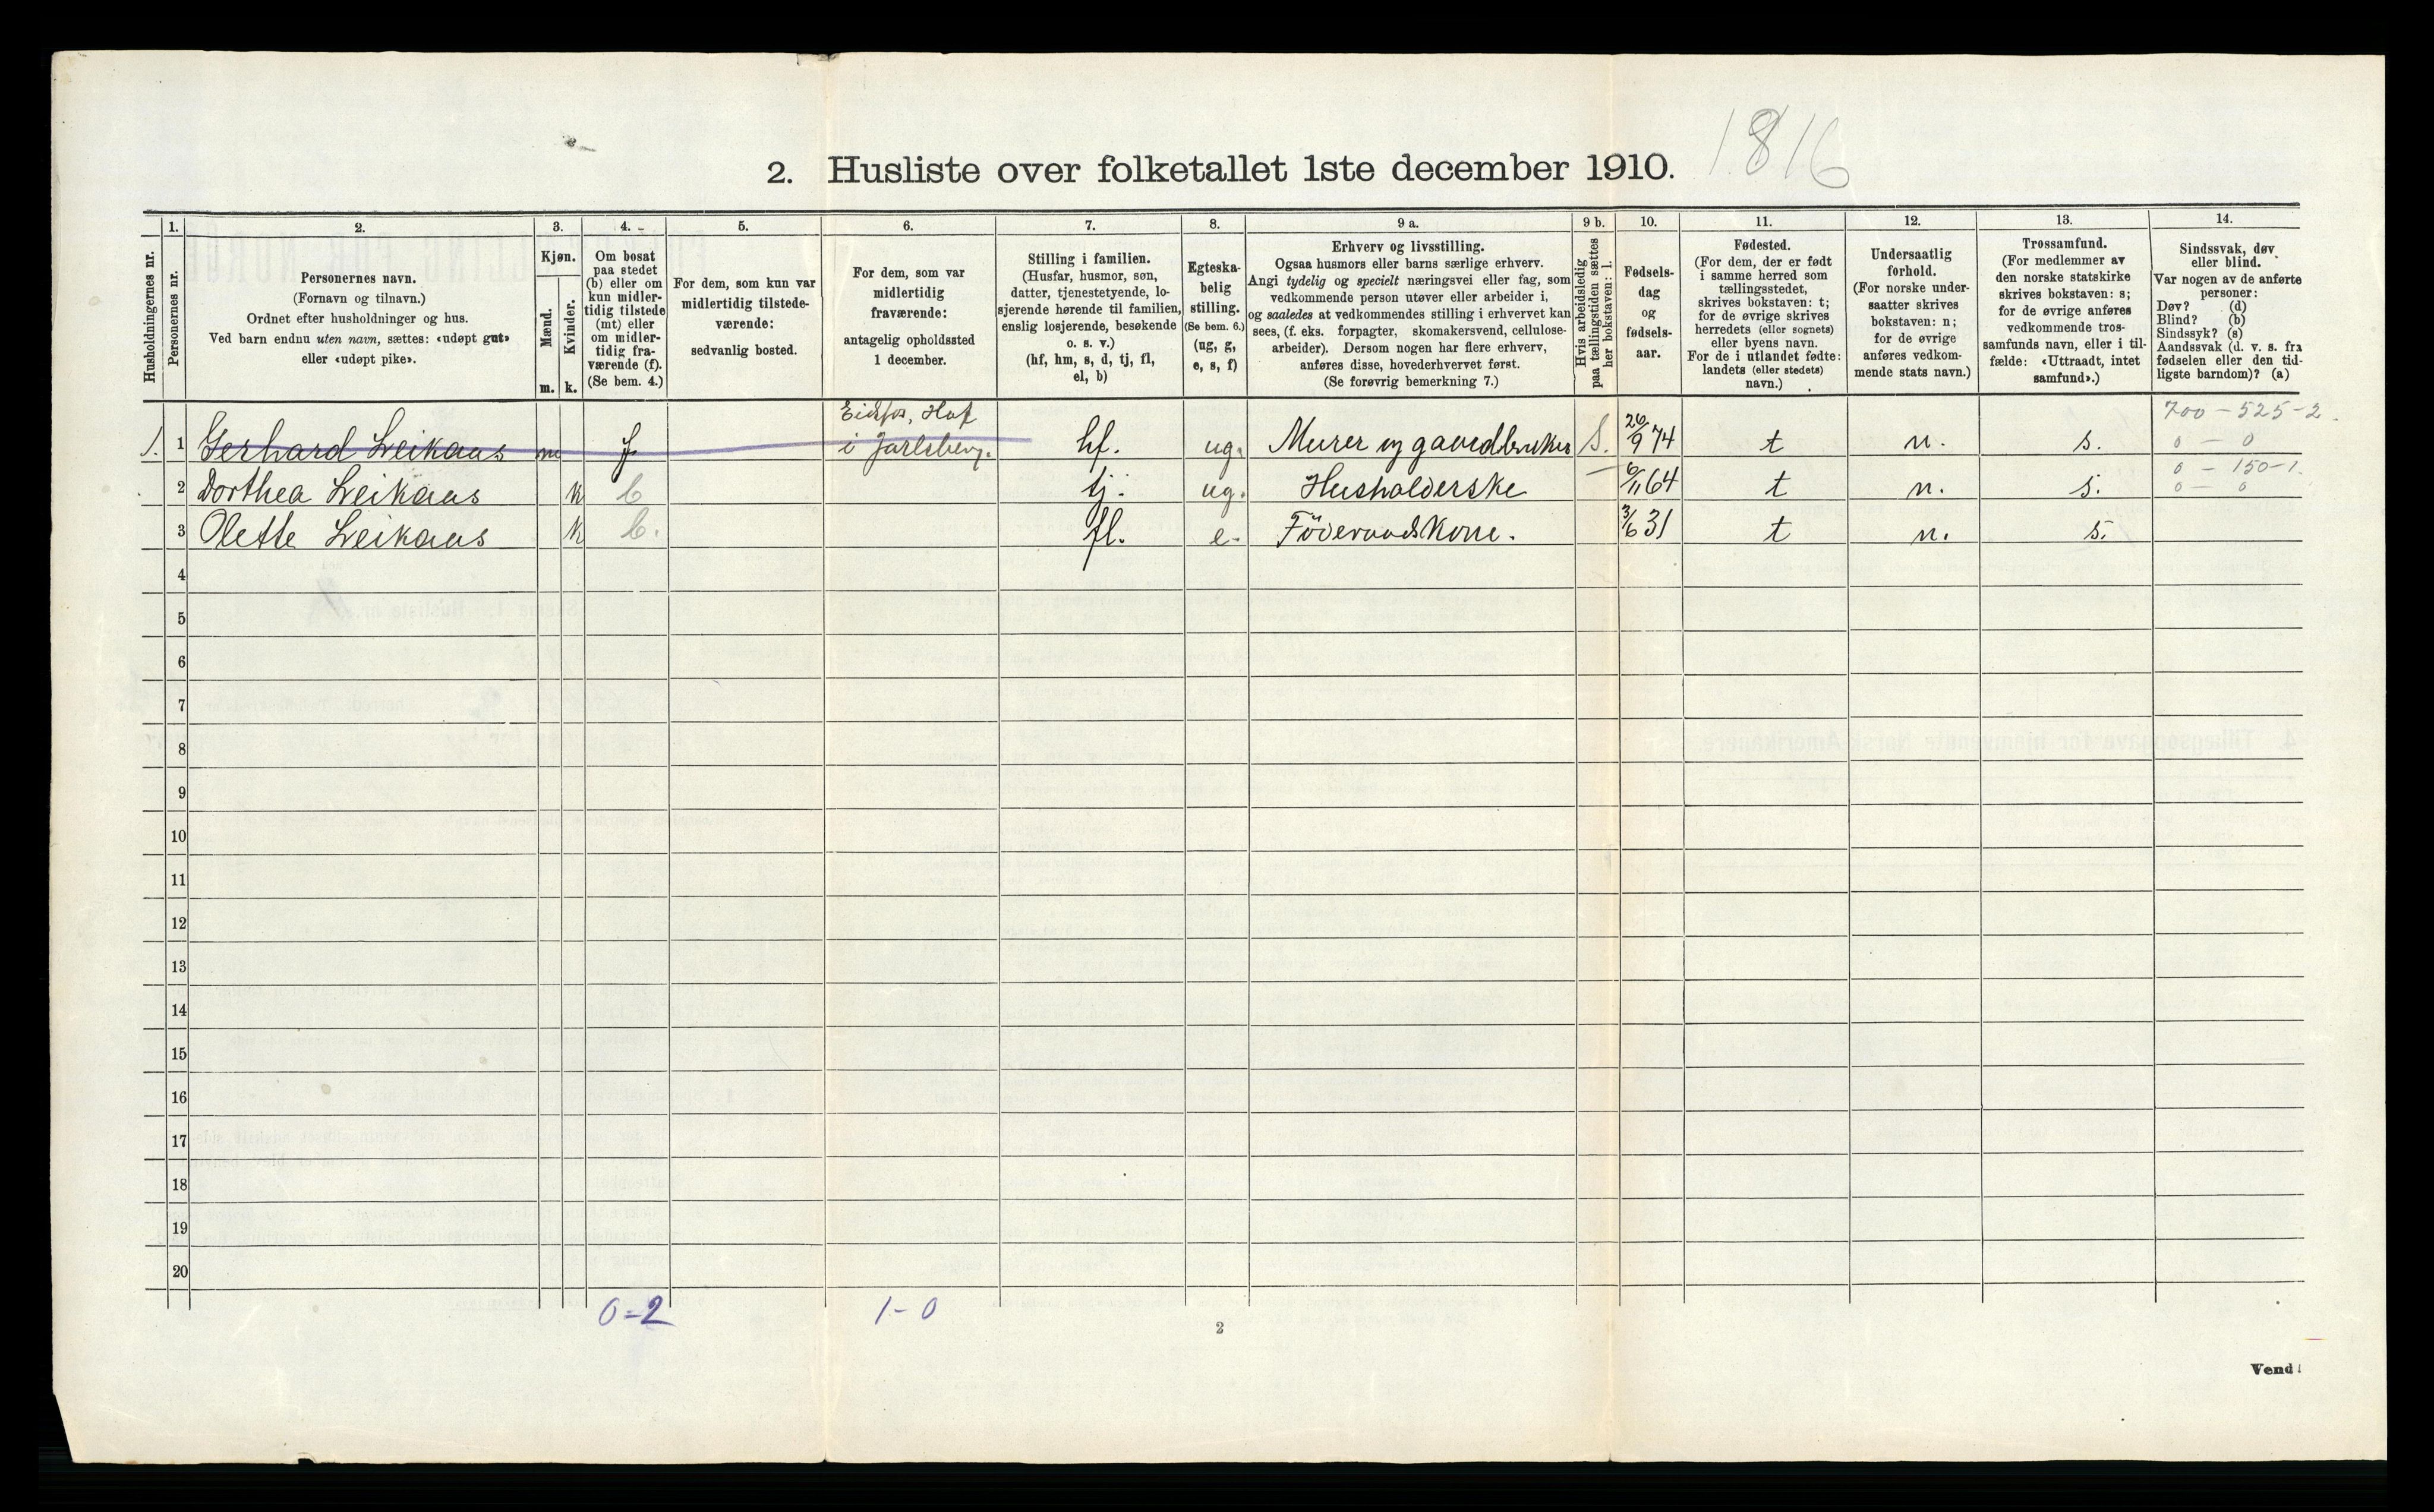 2. Husliste over folketallet 1ste december 1910. 1816
Husholdningernes nr.
1.
Personernes nr.
2.
Personernes navn.
(Fornavn og tilnavn.)
Ordnet efter husholdninger og hus.
Ved barn endnu uten navn, sættes: «udøpt gut»
eller «udøpt pike».
3.
Kjøn.
Mænd.
m.
Kvinder.
k.
4.
Om bosat
paa stedet
(b) eller om
kun midler-
tidig tilstede
(mt) eller
om midler-
tidig fra-
værende (f).
(Se bem. 4.)
5.
For dem, som kun var
midlertidig tilstede-
værende:
sedvanlig bosted.
6.
For dem, som var
midlertidig
fraværende:
antagelig opholdssted
1 december.
7.
Stilling i familien.
(Husfar, husmor, søn,
datter, tjenestetyende, lo-
sjerende hørende til familien,
enslig losjerende, besøkende
o. s. v.)
(hf, hm, s, d, tj, fl,
el, b)
8.
Egteska-
belig
stilling.
(Se bem. 6.)
(ug, g,
e, s, f)
9 a.
Erhverv og livsstilling.
Ogsaa husmors eller barns særlige erhverv.
Angi tydelig og specielt næringsvei eller fag, som
vedkommende person utøver eller arbeider i,
og saaledes at vedkommendes stilling i erhvervet kan
sees, (f. eks. forpagter, skomakersvend, cellulose-
arbeider). Dersom nogen har flere erhverv,
anføres disse, hovederhvervet først.
(Se forøvrig bemerkning 7.)
9 b.
Hvis arbeidsledig
paa tællingstiden sættes
her bokstaven: l.
10.
Fødsels-
dag
og
fødsels-
aar.
11.
Fødested.
(For dem, der er født
i samme herred som
tællingsstedet,
skrives bokstaven: t;
for de øvrige skrives
herredets (eller sognets)
eller byens navn.
For de i utlandet fødte:
landets (eller stedets)
navn.)
12.
Undersaatlig
forhold.
(For norske under-
saatter skrives
bokstaven: n;
for de øvrige
anføres vedkom-
mende stats navn.)
13.
Trossamfund.
(For medlemmer av
den norske statskirke
skrives bokstaven: s;
for de øvrige anføres
vedkommende tros-
samfunds navn, eller i til-
fælde: «Uttraadt, intet
samfund».)
14.
Sindssvak, døv
eller blind.
Var nogen av de anførte
personer:
Døv? (d)
Blind? (b)
Sindssyk? (s)
Aandssvak (d. v. s. fra
fødselen eller den tid-
ligste barndom)? (a)
Hof 700-525-2
1. 1 Gerhard Leikaas m f i Jarlsberg. hf. ug. Murer og gaardbruker S. 26/9 74 t n. s. 0 - 0
0 - 150-1.
2 Dorthea Leikaas k b tj. ug. Husholderske 6/11 64 t n. s. 0 - 0
3 Olette Leikaas k b. fl. e. Föderaadskone. 3/6 31 t n. s.
4
5
6
7
8
9
10
11
12
13
14
15
16
17
18
19
20
0-2 1-0
2
Vend!